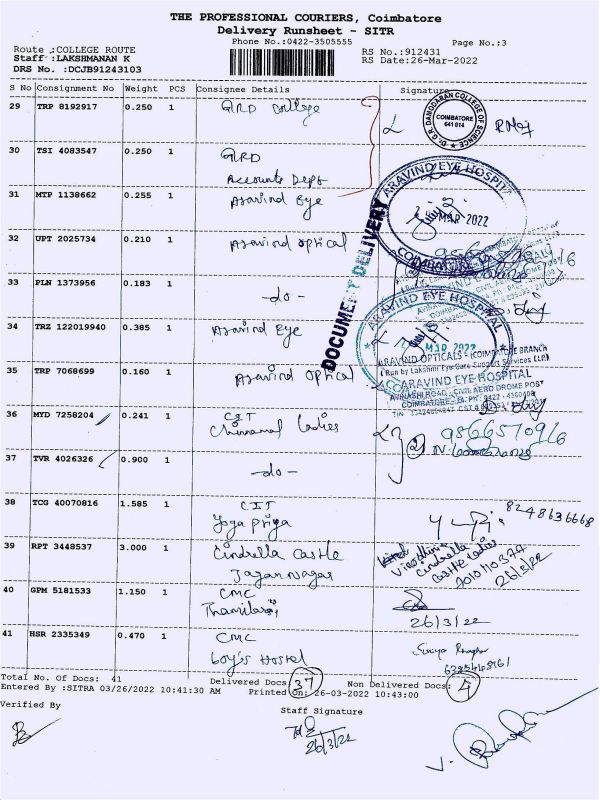 THE PROFESSIONAL COURIERS, Coimbatore
Delivery Runsheet - SITR
Phone No.:0422-3505555
Page No.:3
Route :COLLEGE ROUTE
RS No.:912431
Staff :LAKSHMANAN K
RS Date:26-Mar-2022
DRS No. :DCJB91243103
S No Consignment No Weight PCS Consignee Details Signature
29 TRP 8192917 0.250 1 GRD College
Dr. G.R. DAMODARAN COLLEGE OF SCIENCE
COIMBATORE
641 014
30 TSI 4083547 0.250 1 GRD
Accounts Dept
31 MTP 1138662 0.255 1 Aravind Eye
ARAVIND EYE HOSPITAL
MAR 2022
COIMBATORE
DOCUMENT DELIVERY
32 UPT 2025734 0.210 1 Aravind optical
33 PLN 1373956 0.183 1 -do-
34 TRZ 122019940 0.385 1 Aravind Eye
ARAVIND EYE HOSPITAL
MAR 2022
35 TRP 7068699 0.160 1 Aravind optical
ARAVIND OPTICALS - (COIMBATORE BRANCH
(Run by Lakshmi Eye Care Support Services (LLP)
ARAVIND EYE HOSPITAL
AVINASHI ROAD, CIVIL AERO DROME POST
COIMBATORE
36 MYD 7258204 0.241 1 CIT
Chinnamal Ladies
9866570916
37 TVR 4026326 0.900 1 -do-
38 TCG 40070816 1.585 1 CIT
Yoga priya
8248636668
39 RPT 3448537 3.000 1 Cindrella Castle
Jagan Nagar
cindrella
castle ladies
26/3/22
40 GPM 5181533 1.150 1 CMC
26/3/22
41 HSR 2335349 0.470 1 CMC
boy's Hostel
Total No. Of Docs: 41 Delivered Docs: 37 Non Delivered Docs: 4
Entered By :SITRA 03/26/2022 10:41:30 AM Printed On: 26-03-2022 10:43:00
Verified By
Staff Signature
26/3/22